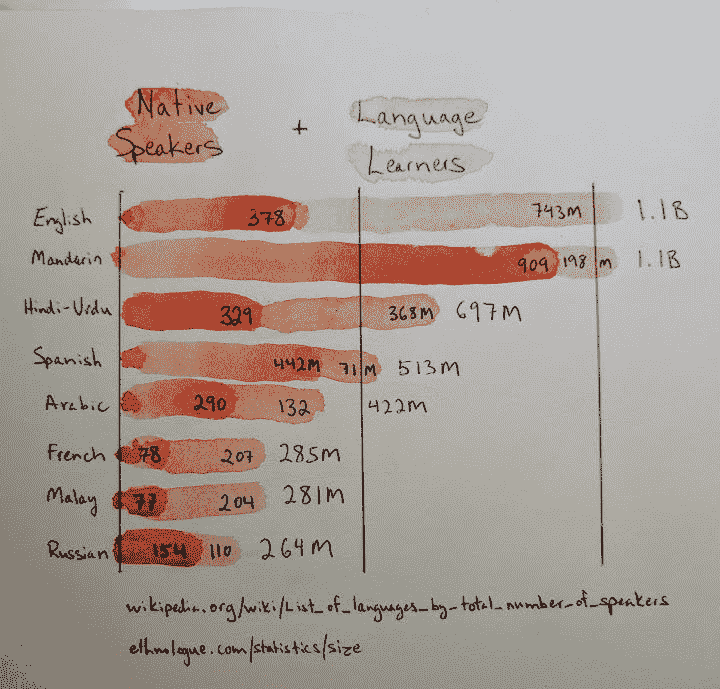 Native
Speakers
+
Language
Learners
English 378 743M 1.1B
Mandarin 909 198 M 1.1B
Hindi-Urdu 329 368M 697M
Spanish 442M 71M 513M
Arabic 290 132 422M
French 78 207 285M
Malay 77 204 281M
Russian 154 110 264M
wikipedia.org/wiki/List_of_languages_by_total_number_of_speakers
ethnologue.com/statistics/size